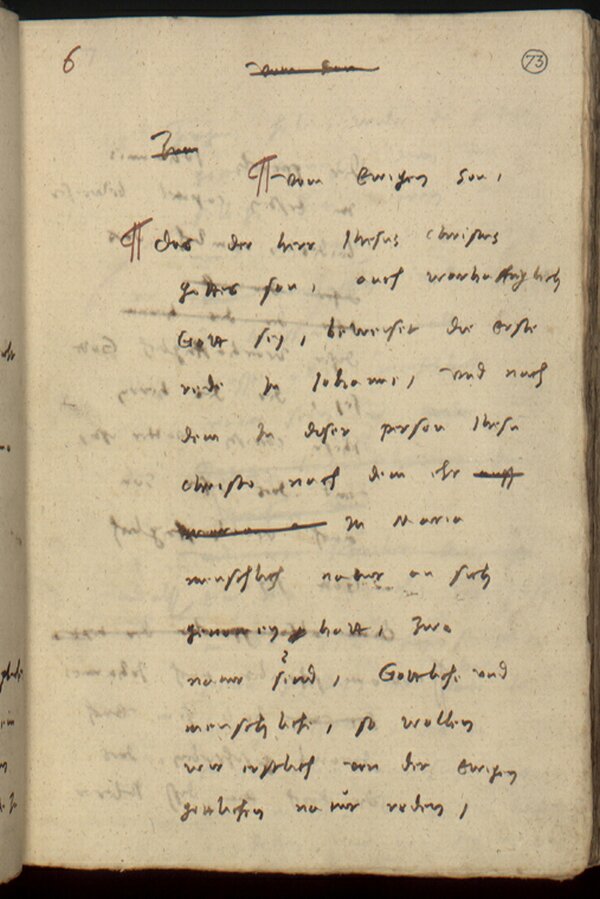 6
73
vom son
Zum
¶ vom ewigen son,
¶ das der herr Jhesus christus
gottes son, auch warhafftiglich
Gott sey, beweiset die erste
rede in Johanne, und nach
dem in diser person Jhesu
christo nach dem ehr auff
in Maria
menschlich natur an sich
genomen hatt, zwo
natur sind, Gottliche und
menschliche, so wollen
wir erstlich von der ewigen
gottlichen natur reden,